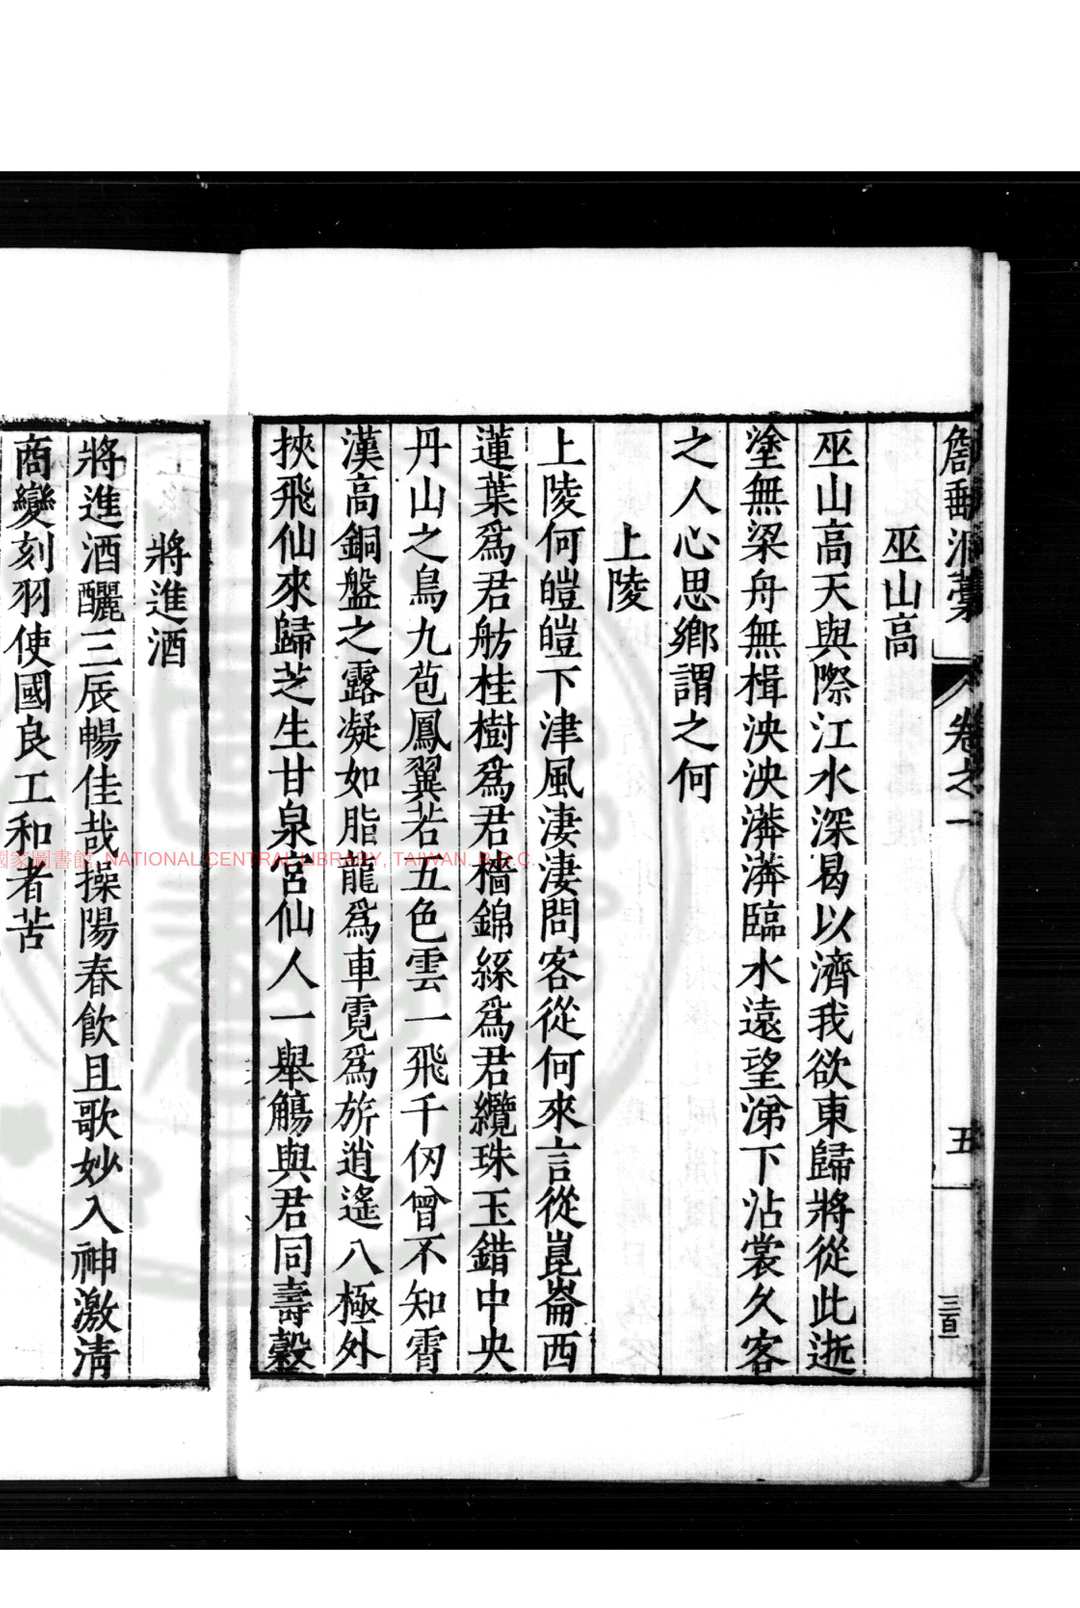 巫山高
巫山高天與際江水深曷以濟我欲東歸將從此逝
塗無梁舟無楫泱泱漭漭臨水遠望涕下沾裳久客
之人心思鄉謂之何
上陵
上陵何皚皚下津風淒淒問客從何來言從崑崙西
蓮葉爲君舫桂樹爲君檣錦絲爲君纜珠玉錯中央
丹山之鳥九苞鳳翼若五色雲一飛千仞曾不知霄
漢高銅盤之露凝如脂龍爲車霓爲旂逍遙八極外
挾飛仙來歸芝生甘泉宮仙人一舉觴與君同壽穀
將進酒
將進酒釃三辰暢佳哉操陽春飲且歌妙入神激清
商變刻羽使國良工和者苦
卷之一
五
三百一
國家圖書館, NATIONAL CENTRAL LIBRARY, TAIWAN, R.O.C.